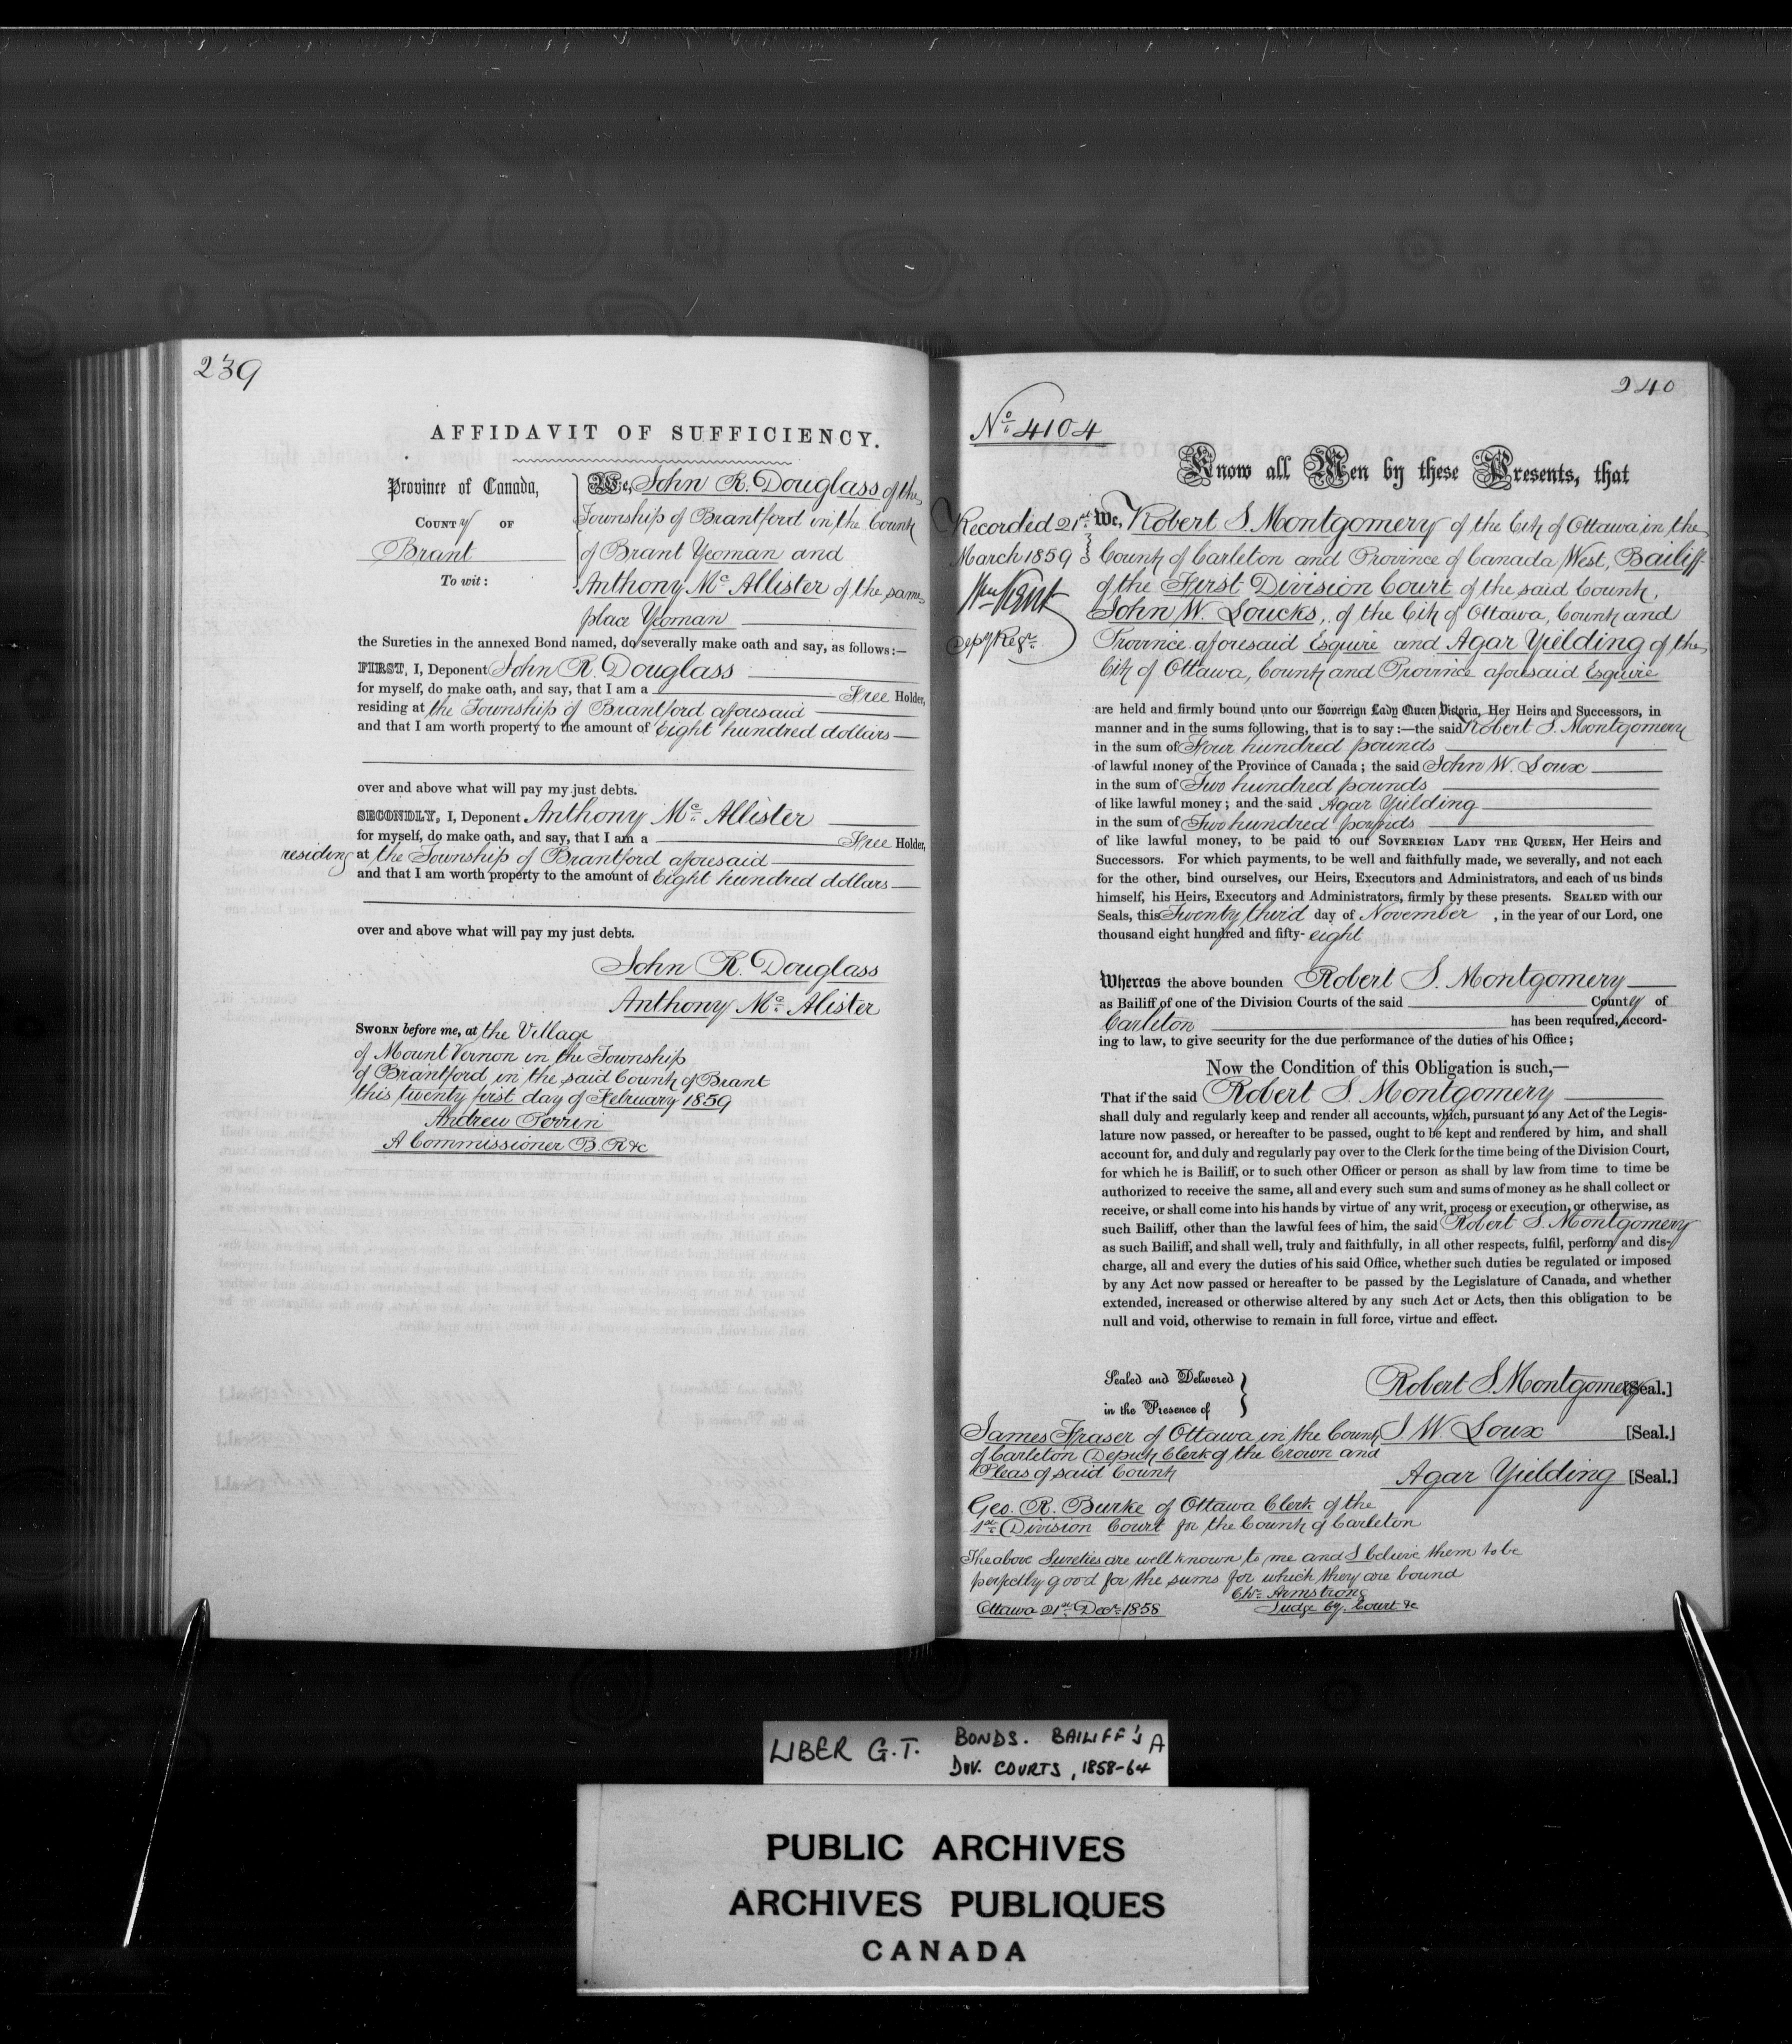 239
AFFIDAVIT OF SUFFICIENCY.
Province of Canada,
COUNTy OF
Brant
To wit:
We, John R. Douglass of the
Township of Brantford in the County
of Brant Yeoman and
Anthony Mc Allister of the same
place Yeoman
the Sureties in the annexed Bond named, do severally make oath and say, as follows:—
FIRST, I, Deponent John R. Douglass
for myself, do make oath, and say, that I am a Free Holder,
residing at the Township of Brantford aforesaid
and that I am worth property to the amount of Eight hundred dollars—
over and above what will pay my just debts.
SECONDLY, I, Deponent Anthony Mc Allister
for myself, do make oath, and say, that I am a Free Holder,
residing at the Township of Brantford aforesaid
and that I am worth property to the amount of Eight hundred dollars—
over and above what will pay my just debts.
John R. Douglass
Anthony Mc Alister
SWORN before me, at the Village
of Mount Vernon in the Township
of Brantford in the said County of Brant
this twenty first day of February 1859
Andrew Perrin
A Commissioner B. R &c
240
No 4104
Know all Men by these Presents, that
Recorded 21st
March 1859
Wm Kent
Depy Regr
We, Robert S. Montgomery of the City of Ottawa in the
County of Carleton and Province of Canada West, Bailiff
of the First Division Court of the said County,
John W. Loucks, of the City of Ottawa, County and
Province aforesaid Esquire and Agar Yielding of the
City of Ottawa, County and Province aforesaid Esquire
are held and firmly bound unto our Sovereign Lady Queen Victoria, Her Heirs and Successors, in
manner and in the sums following, that is to say:—the said Robert S. Montgomery
in the sum of Four hundred pounds
of lawful money of the Province of Canada; the said John W. Loux
in the sum of Two hundred pounds
of like lawful money; and the said Agar Yielding
in the sum of Two hundred pounds
of like lawful money, to be paid to our SOVEREIGN LADY THE QUEEN, Her Heirs and
Successors. For which payments, to be well and faithfully made, we severally, and not each
for the other, bind ourselves, our Heirs, Executors and Administrators, and each of us binds
himself, his Heirs, Executors and Administrators, firmly by these presents. SEALED with our
Seals, this Twenty third day of November , in the year of our Lord, one
thousand eight hundred and fifty- eight
Whereas the above bounden Robert S. Montgomery
as Bailiff of one of the Division Courts of the said County of
Carleton has been required, accord-
ing to law, to give security for the due performance of the duties of his Office;
Now the Condition of this Obligation is such,—
That if the said Robert S. Montgomery
shall duly and regularly keep and render all accounts, which, pursuant to any Act of the Legis-
lature now passed, or hereafter to be passed, ought to be kept and rendered by him, and shall
account for, and duly and regularly pay over to the Clerk for the time being of the Division Court,
for which he is Bailiff, or to such other Officer or person as shall by law from time to time be
authorized to receive the same, all and every such sum and sums of money as he shall collect or
receive, or shall come into his hands by virtue of any writ, process or execution, or otherwise, as
such Bailiff, other than the lawful fees of him, the said Robert S. Montgomery
as such Bailiff, and shall well, truly and faithfully, in all other respects, fulfil, perform and dis-
charge, all and every the duties of his said Office, whether such duties be regulated or imposed
by any Act now passed or hereafter to be passed by the Legislature of Canada, and whether
extended, increased or otherwise altered by any such Act or Acts, then this obligation to be
null and void, otherwise to remain in full force, virtue and effect.
Sealed and Delivered
in the Presence of
James Fraser of Ottawa in the County
of Carleton Deputy Clerk of the Crown and
Pleas of said County
Geo. R. Burke of Ottawa Clerk of the
1st Division Court for the County of Carleton
Robert S. Montgomery [Seal.]
J. W Loux [Seal.]
Agar Yielding [Seal.]
The above Sureties are well known to me and I believe them to be
perfectly good for the sums for which they are bound
Chr. Armstrong
Ottawa 21st Decr 1858 Judge Cy. Court &c
LIBER G.T. BONDS. BAILIFF'S A
DIV. COURTS, 1858-64
PUBLIC ARCHIVES
ARCHIVES PUBLIQUES
CANADA